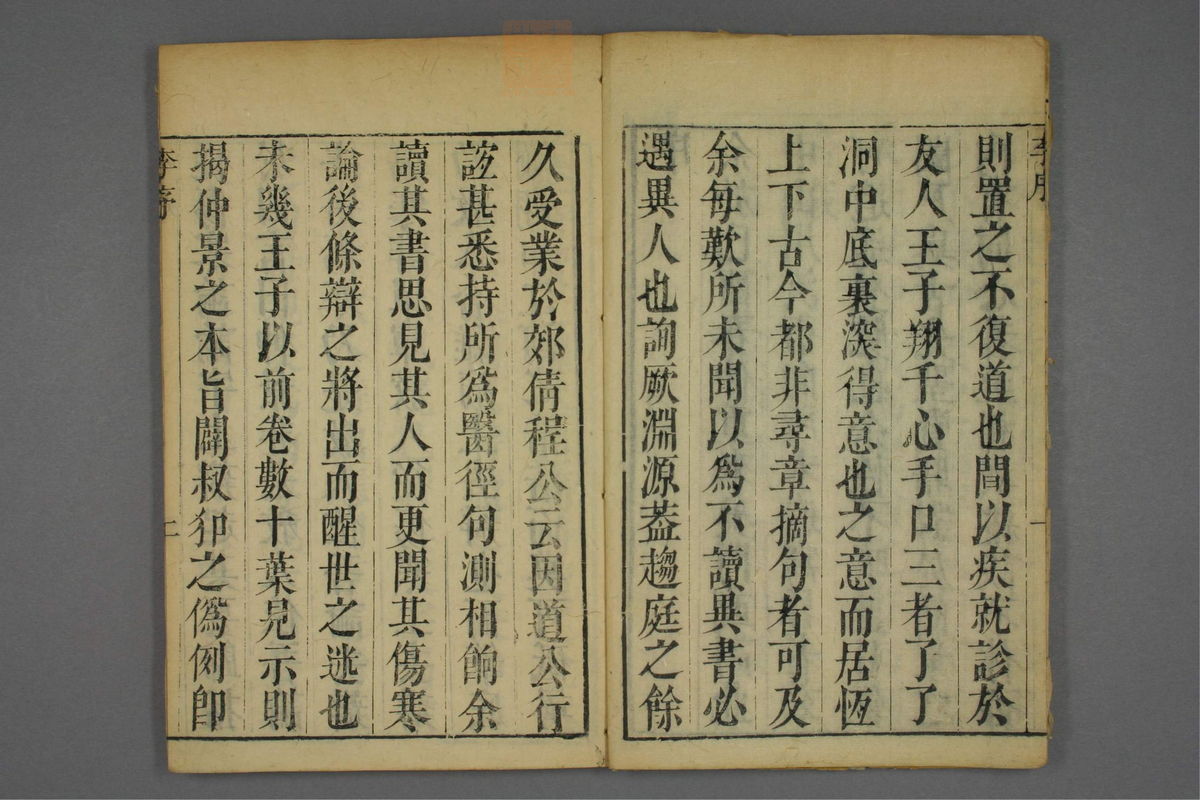 則置之不復道也間以疾就診於
友人王子翔千心手口三者了了
洞中底裏深得意也之意而居恆
上下古今都非尋章摘句者可及
余每歎所未聞以爲不讀異書必
遇異人也詢厥淵源葢趨庭之餘
李序
一
久受業於郊倩程公云因道公行
誼甚悉持所爲醫徑句測相餉余
讀其書思見其人而更聞其傷寒
論後條辯之將出而醒世之迷也
未幾王子以前卷數十葉見示則
揭仲景之本旨闢叔和之僞例卽
李序
二